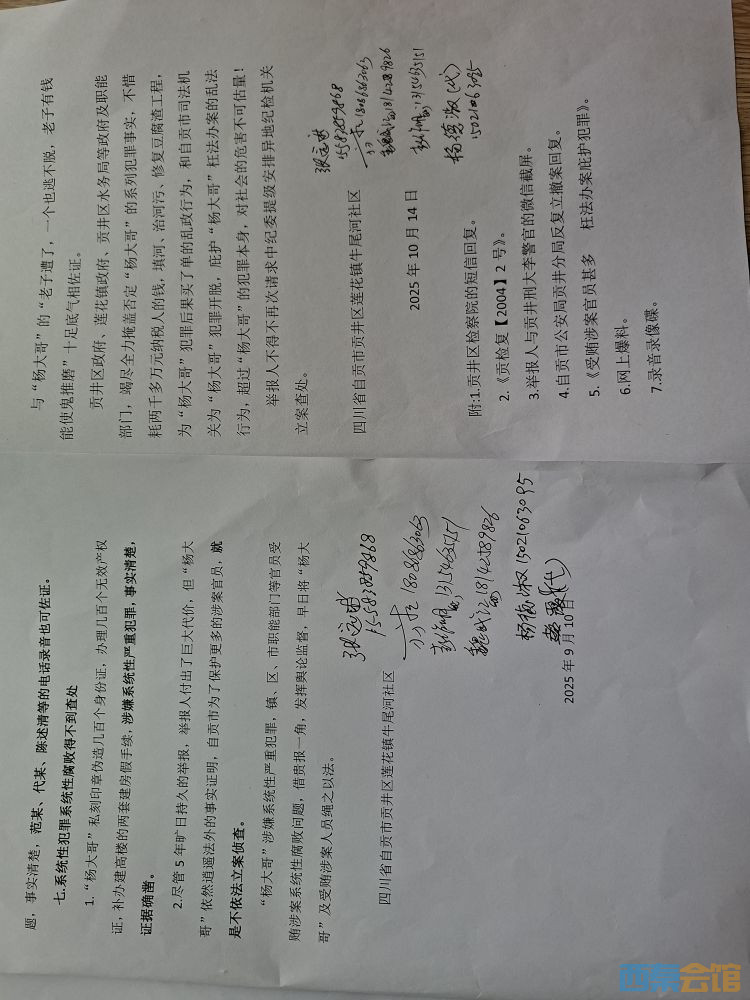 与“杨大哥”的“老子遭了，一个也逃不脱，老子有钱
能使鬼推磨”十足底气相佐证。
贡井区政府、莲花镇政府、贡井区水务局等政府及职能
部门，竭尽全力掩盖否定“杨大哥”的系列犯罪事实，不惜
耗两千多万元纳税人的钱，填河、治河污、修复豆腐渣工程，
为“杨大哥”犯罪后果买了单的乱政行为，和自贡市司法机
关为“杨大哥”犯罪开脱，庇护“杨大哥”枉法办案的乱法
行为，超过“杨大哥”的犯罪本身，对社会的危害不可估量！
举报人不得不再次请求中纪委提级安排异地纪检机关
立案查处。
15583859868
18086863063
18142589826
13154635151
杨德淑（代）
15021063095
四川省自贡市贡井区莲花镇牛尾河社区
2025 年 10 月 14 日
附:1.贡井区检察院的短信回复。
2.《贡检复【2004】2 号》。
3.举报人与贡井刑大李警官的微信截屏。
4.自贡市公安局贡井分局反复立撤案回复。
5.《受贿涉案官员甚多 枉法办案庇护犯罪》。
6.网上爆料。
7.录音录像碟。
题，事实清楚，范某、代某、陈述清等的电话录音也可佐证。
七.系统性犯罪系统性腐败得不到查处
1.“杨大哥”私刻印章伪造几百个身份证，办理几百个无效产权
证，补办建高楼的两套建房假手续，涉嫌系统性严重犯罪，事实清楚，
证据确凿。
2.尽管 5 年旷日持久的举报，举报人付出了巨大代价，但“杨大
哥”依然逍遥法外的事实证明，自贡市为了保护更多的涉案官员，就
是不依法立案侦查。
“杨大哥”涉嫌系统性严重犯罪，镇、区、市职能部门等官员受
贿涉案系统性腐败问题，借贵报一角，发挥舆论监督，早日将“杨大
哥”及受贿涉案人员绳之以法。
15583859868
18086863063
18142589826
杨德淑 15021063095
（代）
四川省自贡市贡井区莲花镇牛尾河社区
2025 年 9 月 10 日
西祠会馆